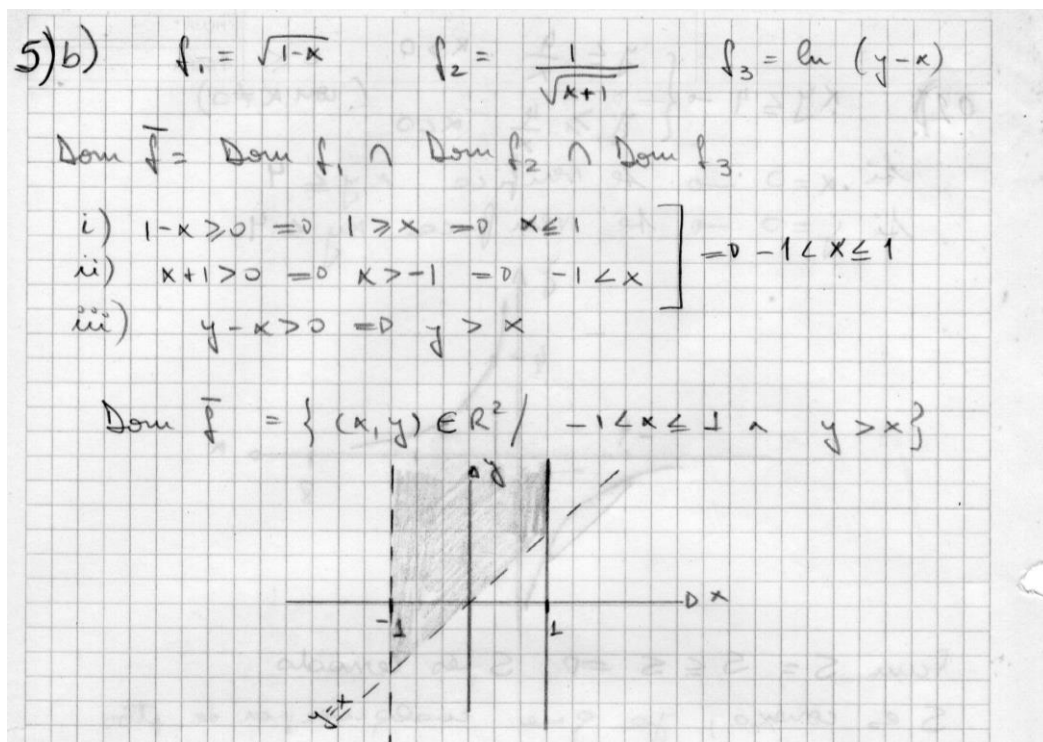 5) b) f₁ = √(1-x) f₂ = 1/√(x+1) f₃ = ln (y-x)
Dom f̄ = Dom f₁ ∩ Dom f₂ ∩ Dom f₃
i) 1-x ≥ 0 ⇒ 1 ≥ x ⇒ x ≤ 1
ii) x+1 > 0 ⇒ x > -1 ⇒ -1 < x ] ⇒ -1 < x ≤ 1
iii) y-x > 0 ⇒ y > x
Dom f̄ = { (x,y) ∈ R² / -1 < x ≤ 1 ∧ y > x }
y
x
-1 1
y=x